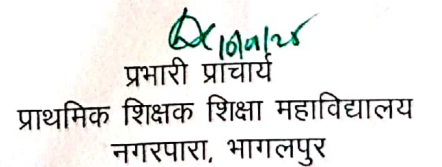 प्रभारी प्राचार्य
प्राथमिक शिक्षक शिक्षा महाविद्यालय
नगरपारा, भागलपुर